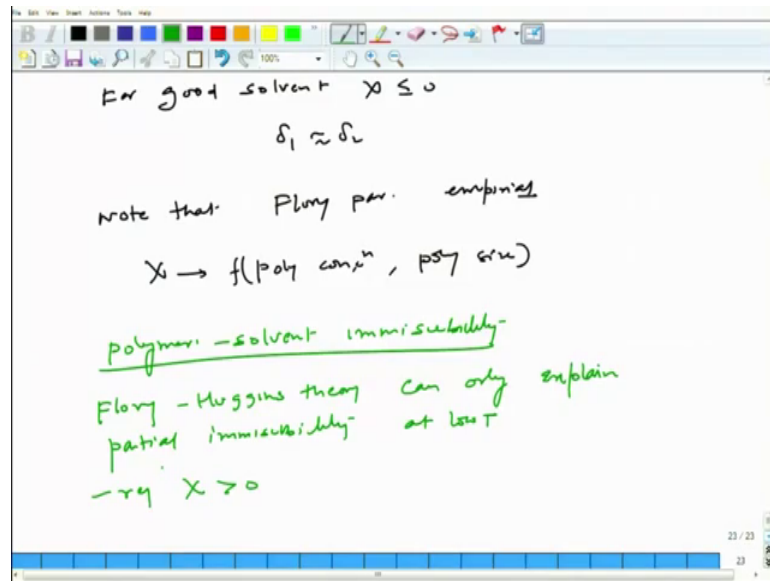 File Edit View Insert Actions Tools Help
B I
100%
For good solvent χ ≤ 0
δ₁ ≈ δ₂
Note that Flory par. empirical
χ → f(poly concⁿ, poly size)
polymer-solvent immiscibility
Flory-Huggins theory can only explain
partial immiscibility at low T
- req χ > 0
23 / 23
23